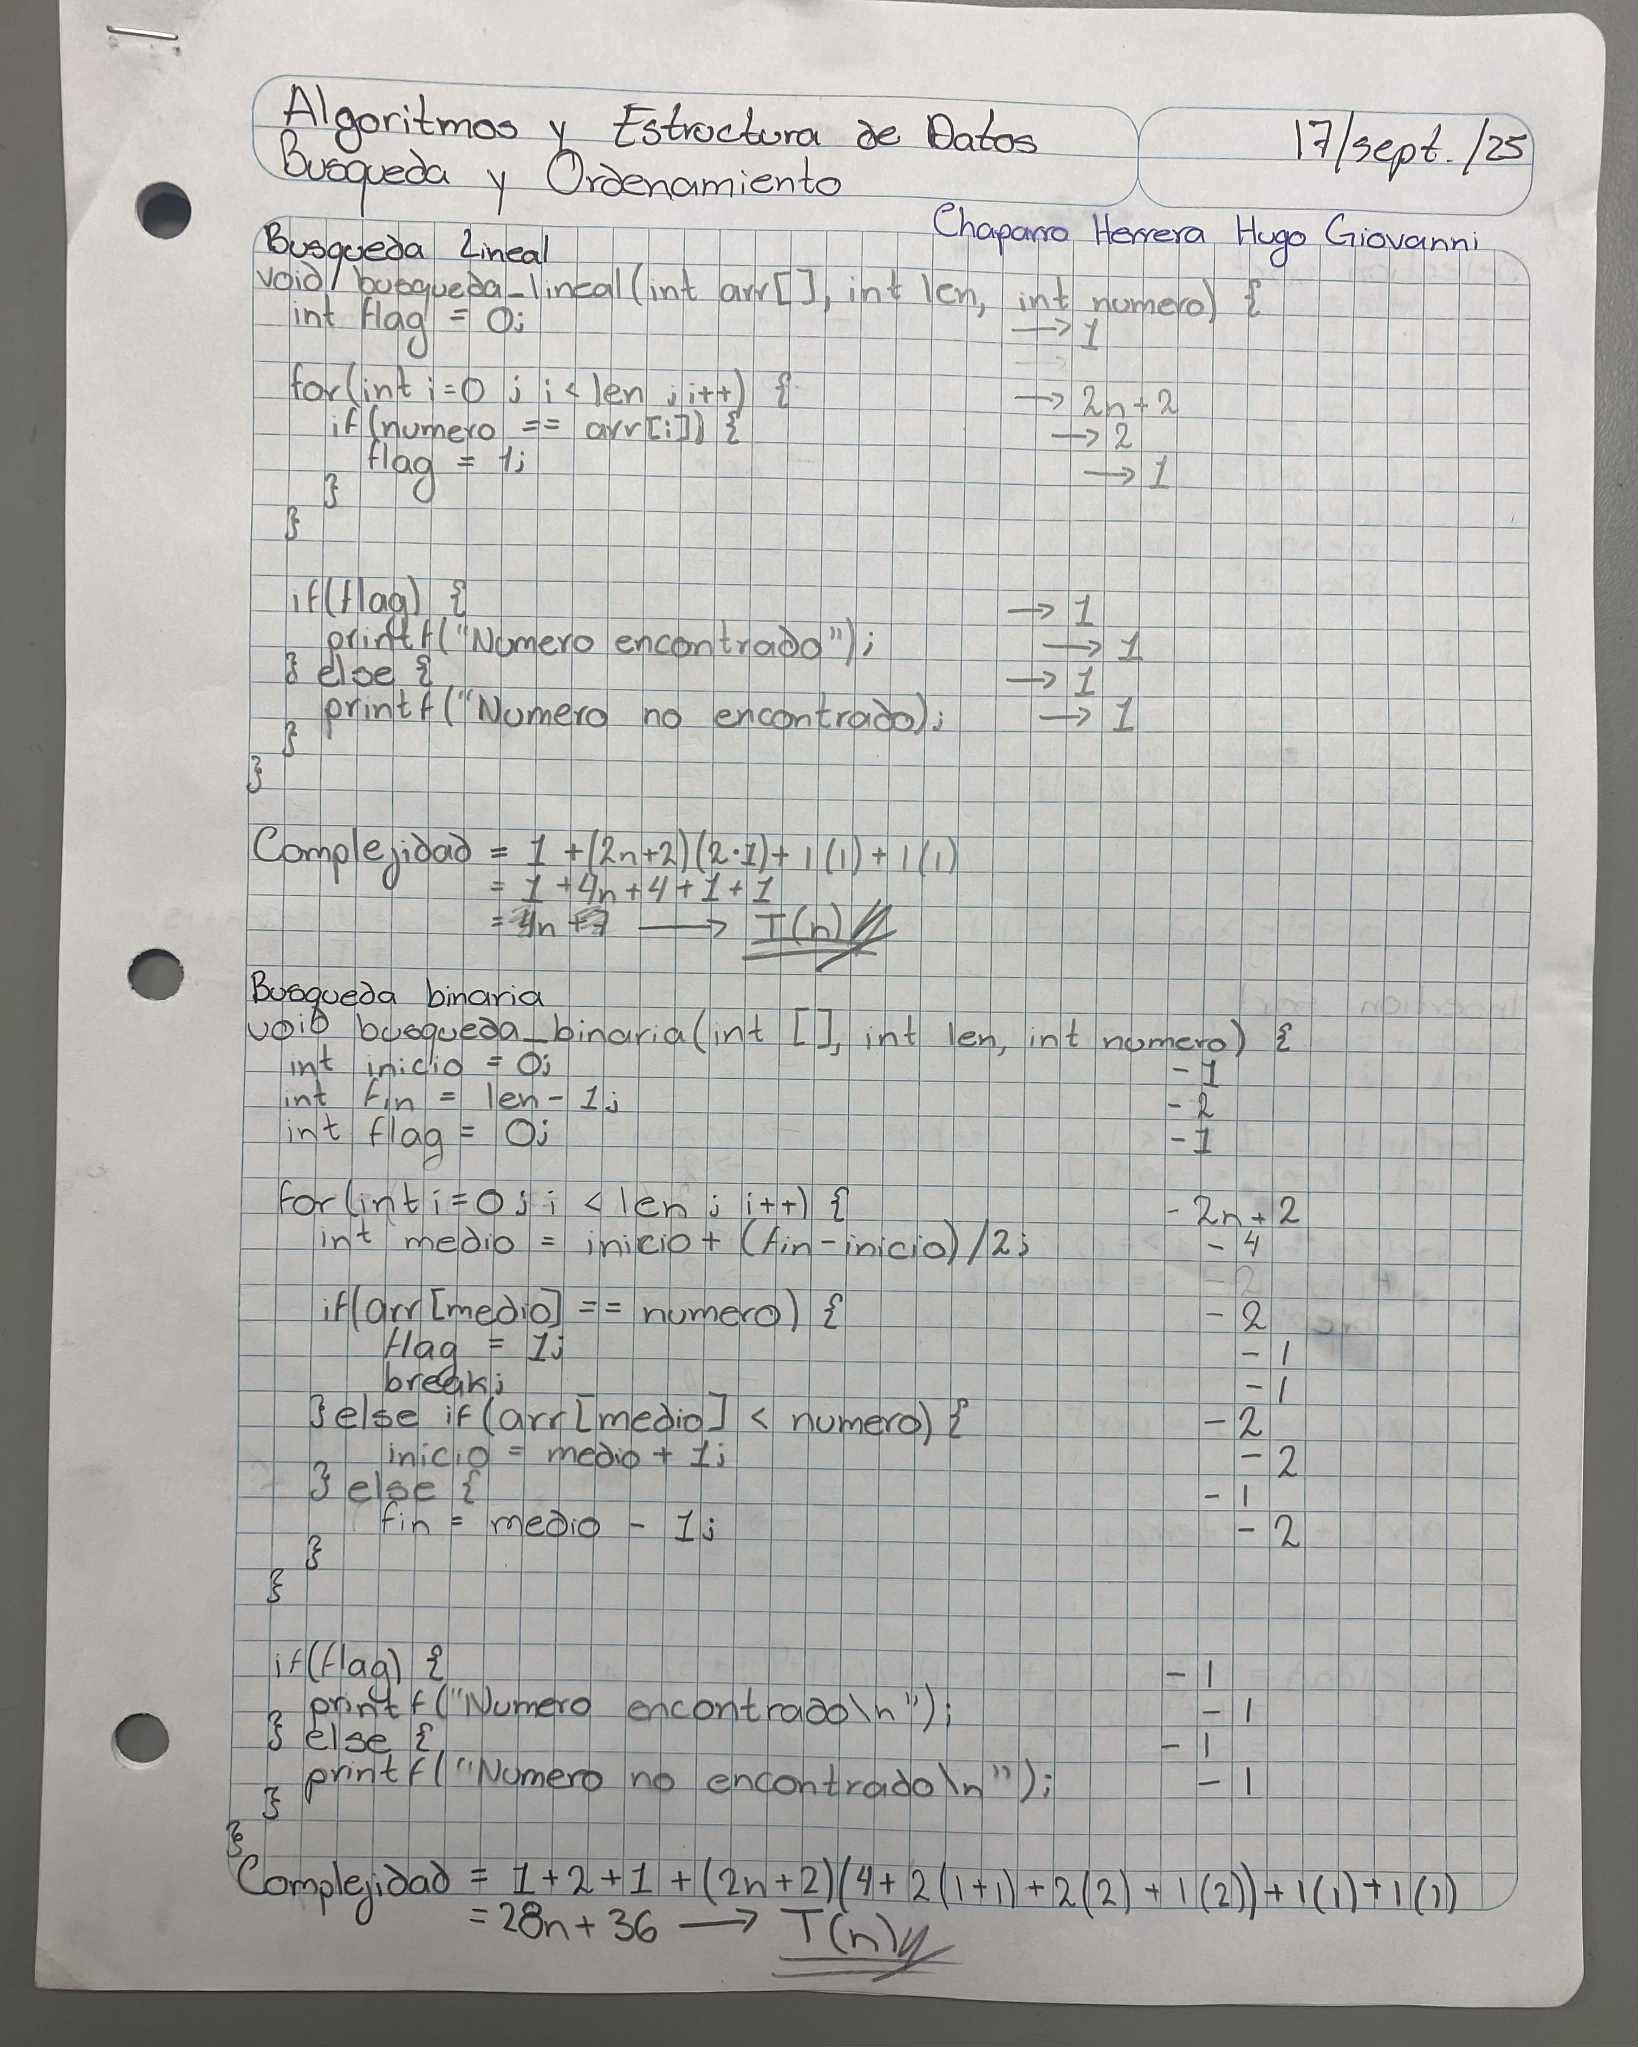 Algoritmos y Estructura de Datos
Busqueda y Ordenamiento
17/sept./25
Chaparro Herrera Hugo Giovanni
Busqueda Lineal
void busqueda_lineal(int arr[], int len, int numero) {
int flag = 0; → 1
for(int i=0 ; i < len ; i++) { → 2n+2
if(numero == arr[i]) { → 2
flag = 1; → 1
}
}
if(flag) { → 1
printf("Numero encontrado"); → 1
} else { → 1
printf("Numero no encontrado); → 1
}
}
Complejidad = 1 + (2n+2)(2·1) + 1(1) + 1(1)
= 1 + 4n + 4 + 1 + 1
= 4n + 7 → T(n)
Busqueda binaria
void busqueda_binaria(int [], int len, int numero) {
int inicio = 0; - 1
int fin = len - 1; - 2
int flag = 0; - 1
for(int i=0 ; i < len ; i++) { - 2n + 2
int medio = inicio + (fin-inicio)/2; - 4
if(arr[medio] == numero) { - 2
flag = 1; - 1
break; - 1
} else if(arr[medio] < numero) { - 2
inicio = medio + 1; - 2
} else { - 1
fin = medio - 1; - 2
}
}
if(flag) { - 1
printf("Numero encontrado\n"); - 1
} else { - 1
printf("Numero no encontrado\n"); - 1
}
}
Complejidad = 1+2+1 + (2n+2)(4+2(1+1)+2(2)+1(2))+1(1)+1(1)
= 28n + 36 → T(n)